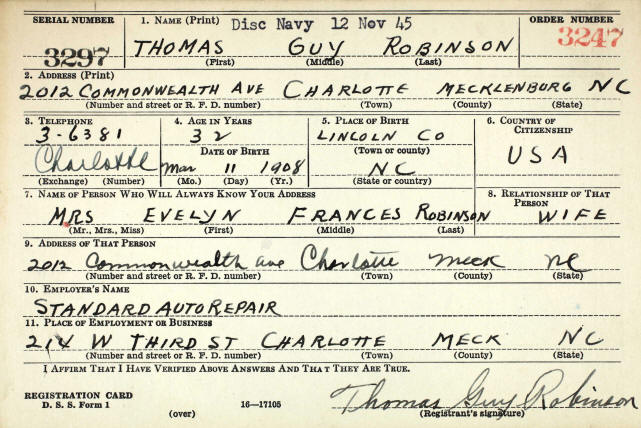 SERIAL NUMBER 1. NAME (Print) Disc Navy 12 Nov 45 ORDER NUMBER
3297 THOMAS GUY ROBINSON 3247
(First) (Middle) (Last)
2. ADDRESS (Print)
2012 COMMONWEALTH AVE CHARLOTTE MECKLENBURG NC
(Number and street or R. F. D. number) (Town) (County) (State)
3. TELEPHONE 4. AGE IN YEARS 5. PLACE OF BIRTH 6. COUNTRY OF CITIZENSHIP
3-6381 32 LINCOLN CO USA
DATE OF BIRTH (Town or county)
Charlotte Mar 11 1908 NC
(Exchange) (Number) (Mo.) (Day) (Yr.) (State or country)
7. NAME OF PERSON WHO WILL ALWAYS KNOW YOUR ADDRESS 8. RELATIONSHIP OF THAT PERSON
MRS EVELYN FRANCES ROBINSON WIFE
(Mr., Mrs., Miss) (First) (Middle) (Last)
9. ADDRESS OF THAT PERSON
2012 Commonwealth ave Charlotte Meck NC
(Number and street or R. F. D. number) (Town) (County) (State)
10. EMPLOYER'S NAME
STANDARD AUTO REPAIR
11. PLACE OF EMPLOYMENT OR BUSINESS
214 W THIRD ST CHARLOTTE MECK NC
(Number and street or R. F. D. number) (Town) (County) (State)
I AFFIRM THAT I HAVE VERIFIED ABOVE ANSWERS AND THAT THEY ARE TRUE.
REGISTRATION CARD
D. S. S. Form 1 (over) 16—17105 Thomas Guy Robinson
(Registrant's signature)